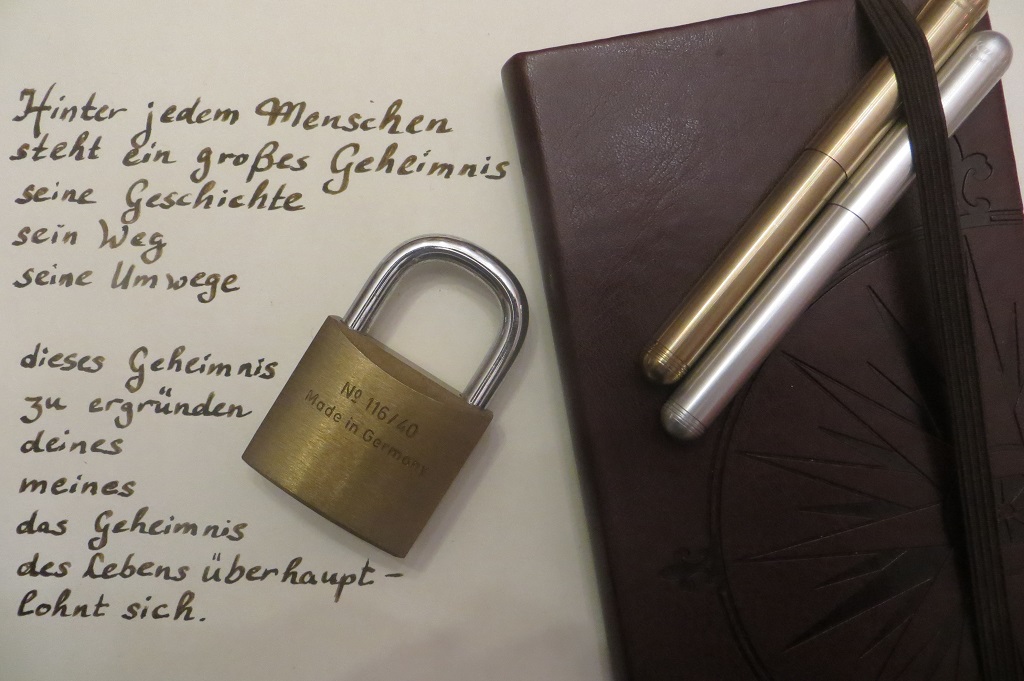 Hinter jedem Menschen
steht ein großes Geheimnis
seine Geschichte
sein Weg
seine Umwege
dieses Geheimnis
zu ergründen
deines
meines
das Geheimnis
des Lebens überhaupt –
lohnt sich.
№ 116/40
Made in Germany